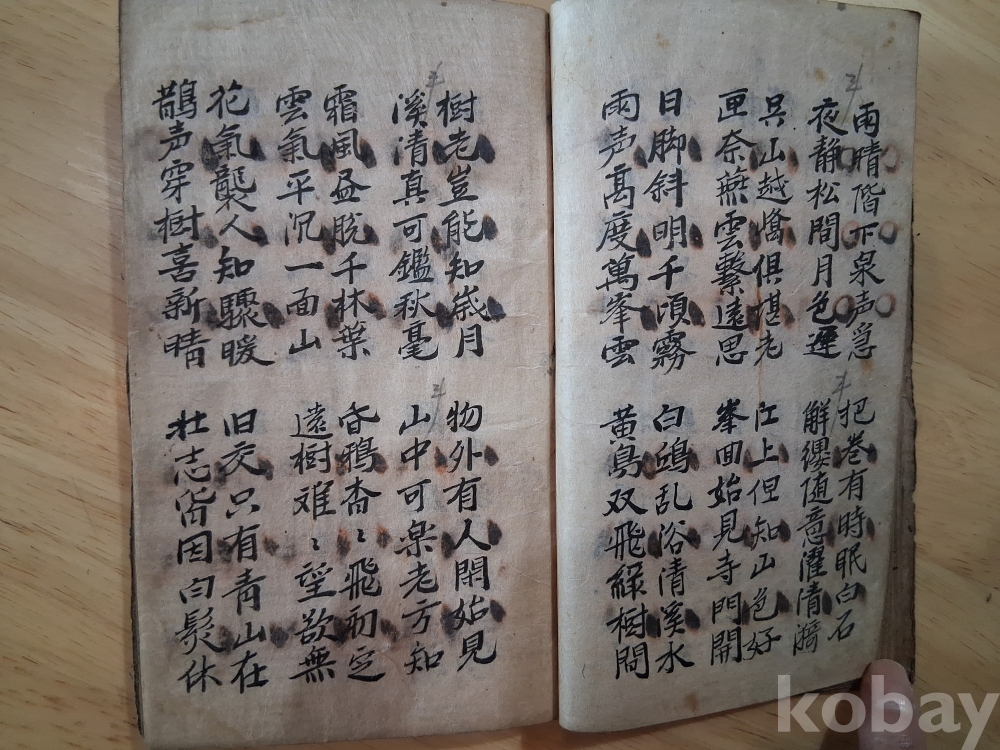 雨晴階下泉声急
夜静松間月色遲
吳山越俱堪老
匣奈燕雲繫遠思
日脚斜明千頃霧
雨声高度萬峯雲
把卷有時眠白石
解纓随意濯清漪
江上但知山色好
峯回始見寺門開
白鷗乱浴清溪水
黄鳥双飛緑樹間
樹老豈能知歲月
溪清真可鑑秋毫
霜風昼脫千林葉
雲氣平沉一面山
花氣襲人知驟暖
鵲声穿樹喜新晴
物外有人閑始見
山中可楽老方知
昏鴉杳〻飛初定
遠樹难〻望欲無
旧交只有靑山在
壮志皆因白髮休
kobay